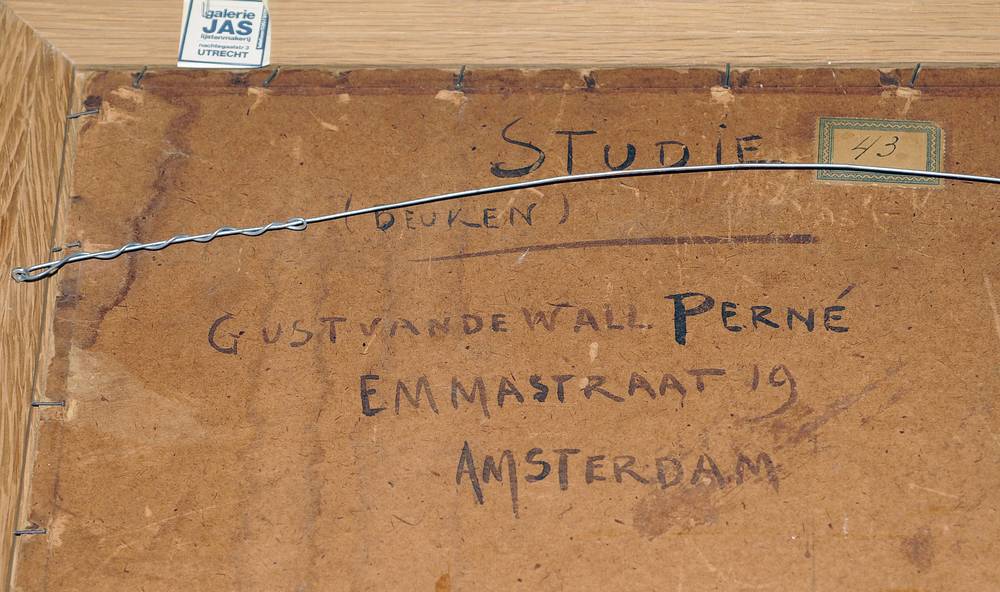 galerie
JAS
lijstenmakerij
nachtegaalstr 2
UTRECHT
STUDIE
43
(BEUKEN)
GUST VAN DE WALL PERNÉ
EMMASTRAAT 19
AMSTERDAM